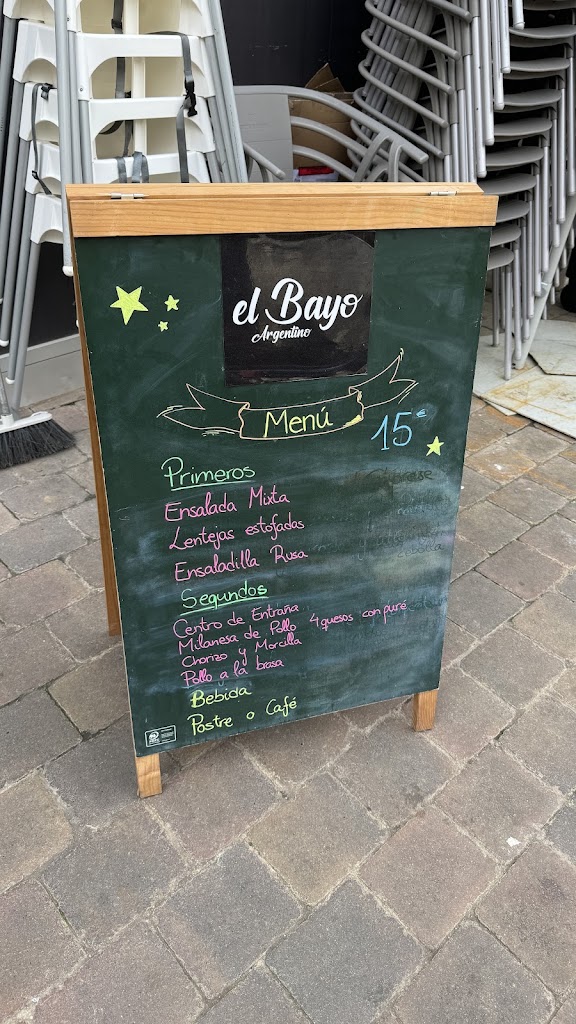 el Bayo
Argentino
Menú
15€
Primeros
Ensalada Mixta
Lentejas estofadas
Ensaladilla Rusa
Segundos
Centro de Entraña
Milanesa de Pollo 4 quesos con puré
Chorizo y Morcilla
Pollo a la brasa
Bebida
Postre o Café